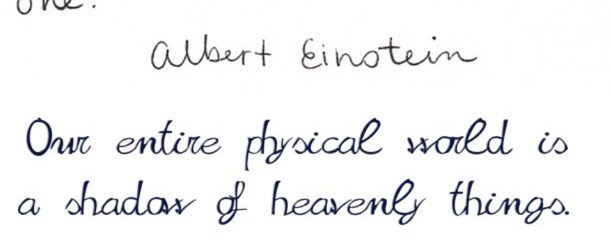 one.
Albert Einstein
Our entire physical world is
a shadow of heavenly things.